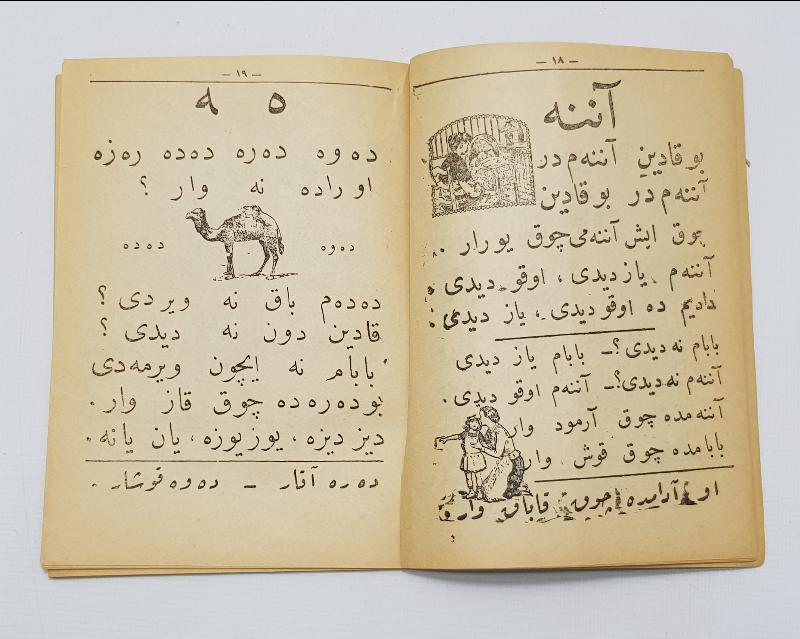 — ١٨ —
آننه
بو قادین آننه‌م در
آننه‌م در بو قادین
چوق ایش آننه‌می چوق یورار .
آننه‌م یاز دیدی ، اوقو دیدی ؛
دادیم ده اوقو دیدی ، یاز دیدی ؛
بابام نه دیدی ؟ — بابام یاز دیدی
آننه‌م نه دیدی ؟ — آننه‌م اوقو دیدی .
آننه‌مده چوق آرمود وار
بابامده چوق قوش وار
او آرامده چوق قاباق وار
— ١٩ —
ه ـه
ده‌وه ده‌ره ده‌ده ره‌زه
اوراده نه وار ؟
ده‌وه ده‌ده
ده‌ده‌م باق نه ویردی ؟
قادین دون نه دیدی ؟
بابام نه ایچون ویرمه‌دی
بو ده‌ره‌ده چوق قاز وار .
دیز دیزه ، یوز یوزه ، یان یانه .
ده‌ره آقار — ده‌وه قوشار .